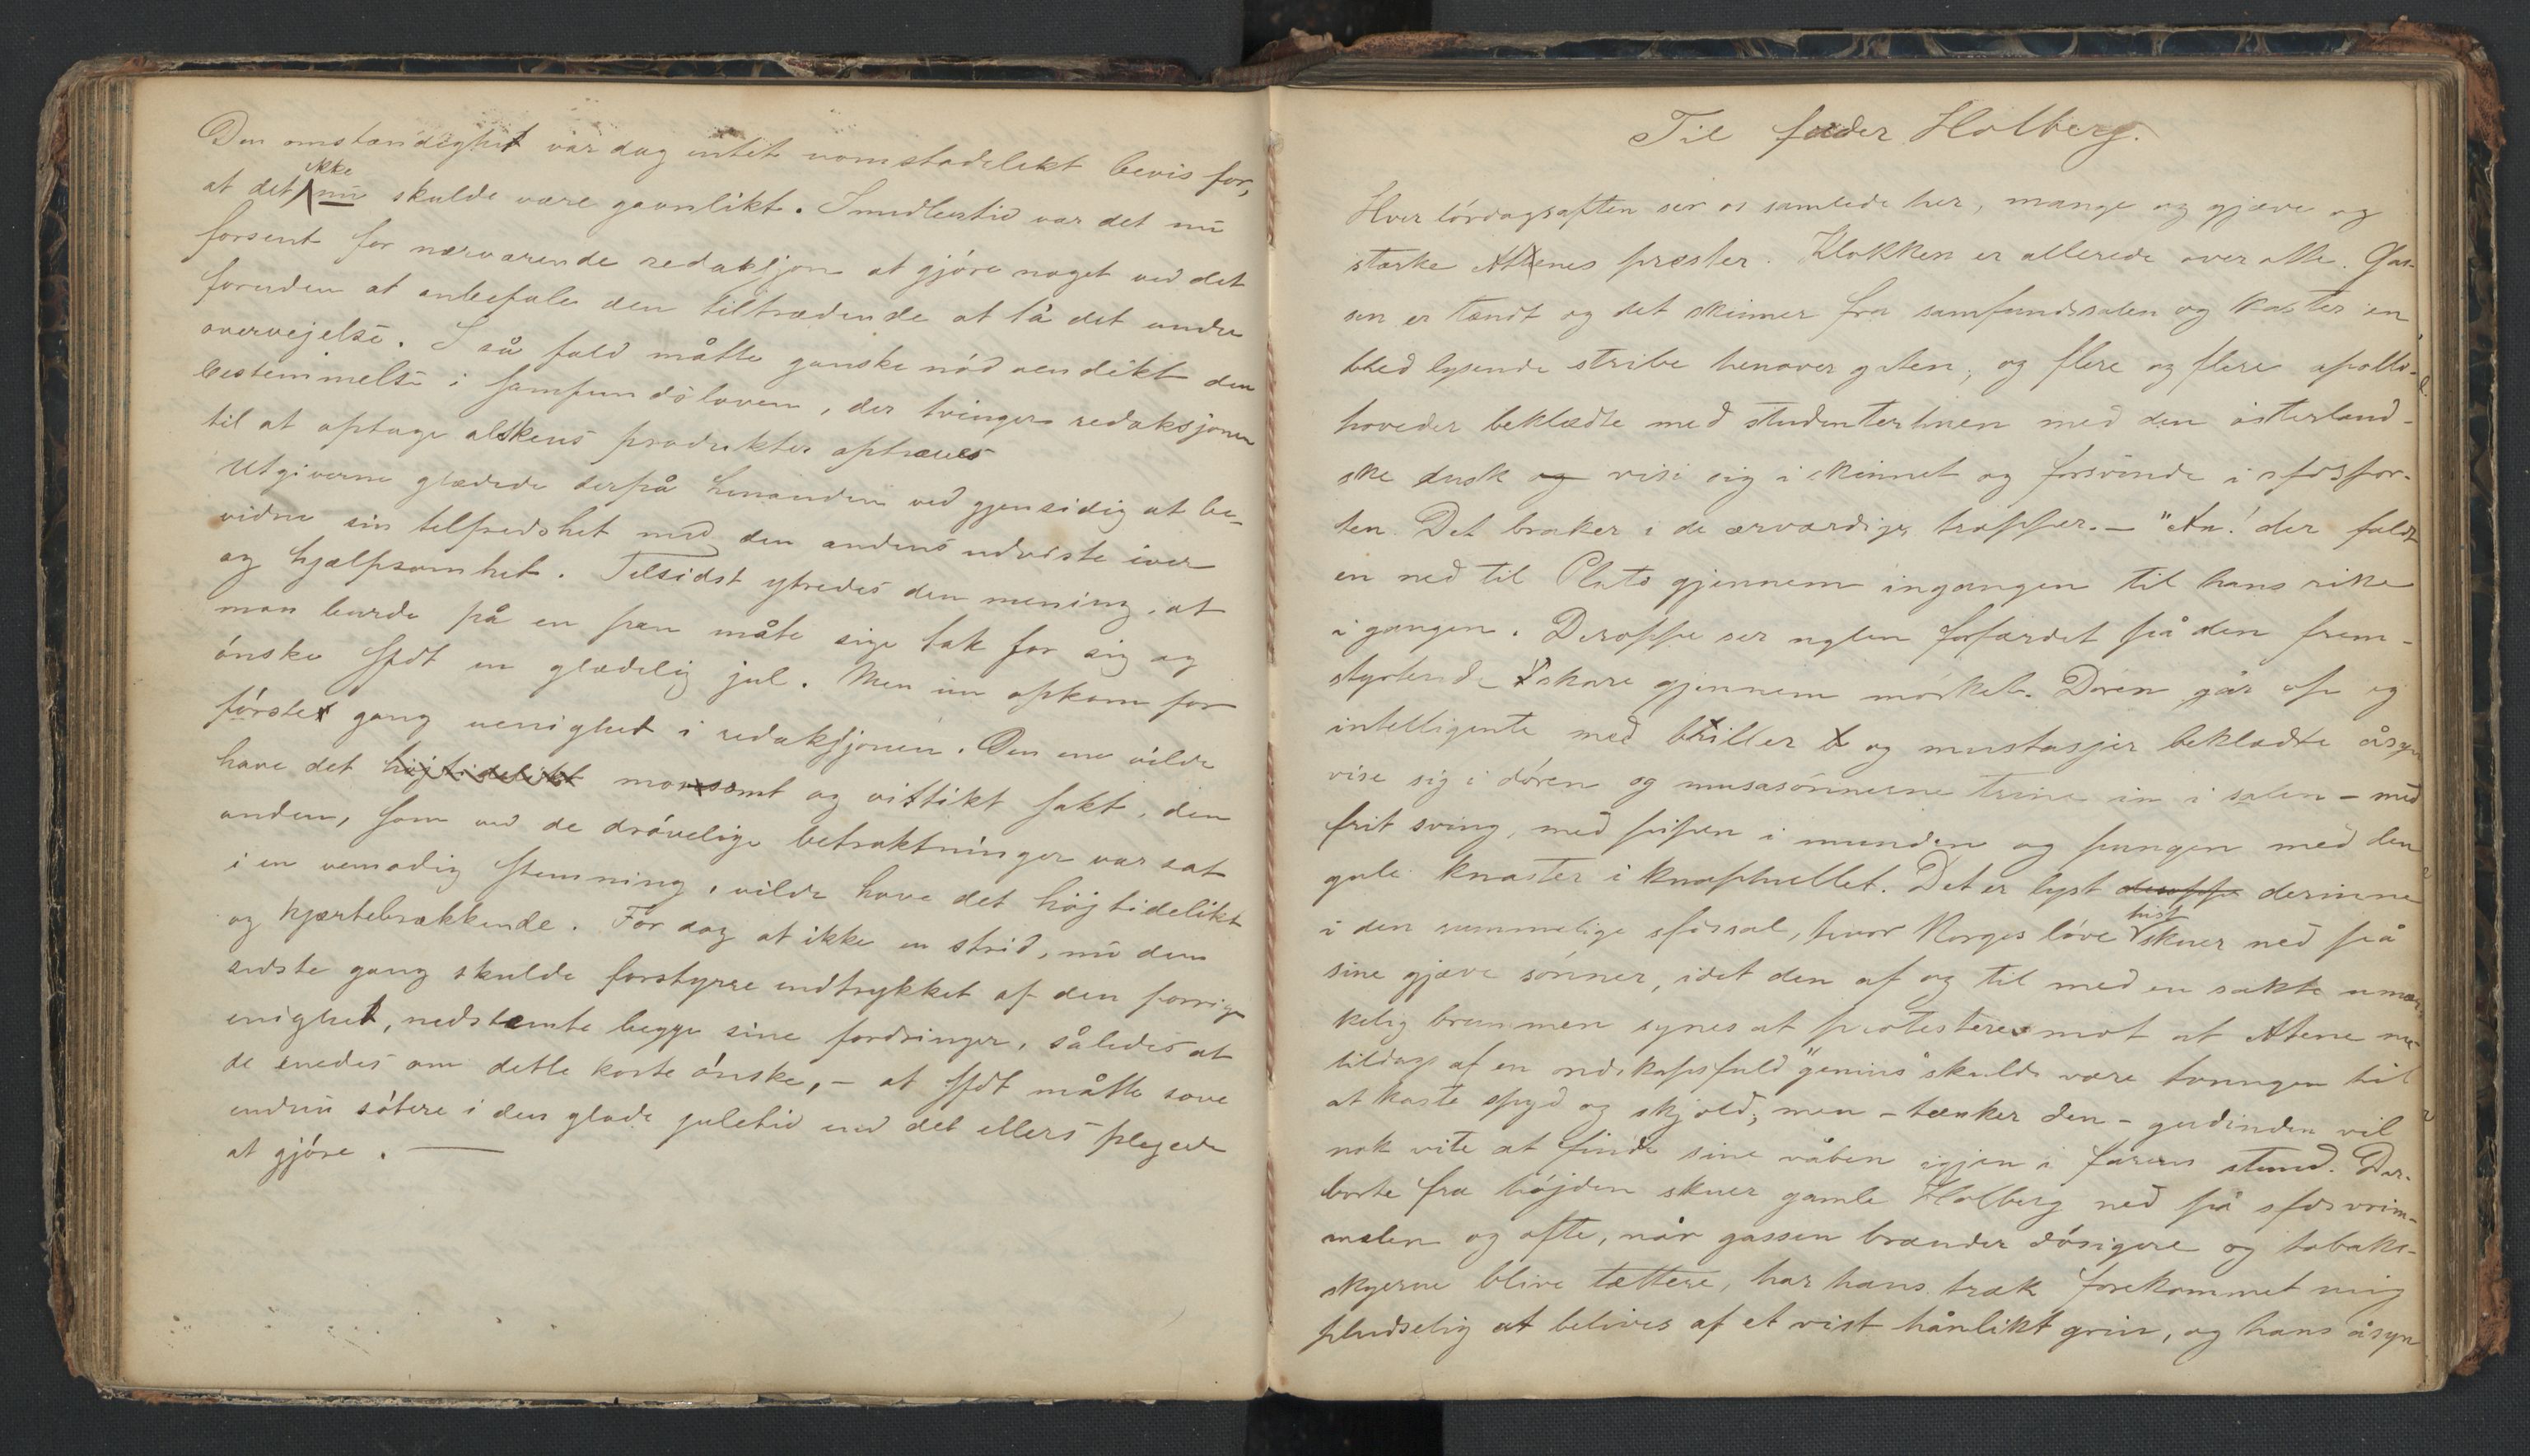 Den omstændighet var dog intet uomstødelikt bevis for,
at det ikke nu skulde være gavnlikt. Imidlertid var det nu
forsent for nærværende redaksjon at gjøre noget ved det
foruden at anbefale den tiltrædende at ta det under
overvejelse. I så fald måtte ganske nødvendikt den
bestemmelse i samfundsloven, der tvinger redaksjonen
til at optage alskens produkter ophæves
Utgiverne glædede derpå hinanden ved gjensidig at be-
vidne sin tilfredshet med den andens udviste iver
og hjælpsomhet. Tilsidst ytredes den mening, at
man burde på en pæn måte sige tak for sig og
ønske spdt en glædelig jul. Men nu opkom for
første gang uenighet i redaksjonen. Den ene vilde
have det højtidelikt morsomt og vittikt sakt, den
anden, som ved de drøvelige betraktninger var sat
i en vemodig stemning, vilde have det højtidelikt
og hjærtebrækkende. For dog at ikke en strid, nu den
sidste gang skulde forstyrre indtrykket af den forrige
enighet, nedstemte begge sine fordringer, således at
de enedes om dette korte ønske, – at spdt måtte sove
endnu søtere i den glade juletid end det ellers plejede
at gjøre. —
Til fader Holberg.
Hver lørdagsaften ser os samlede her, mange og gjæve og
stærke Atenes præster. Klokken er allerede over otte. Gas-
sen er tændt og det skinner fra samfundssalen og kaster en
bred lysende stribe henover gaten, og flere og flere apollo-
hoveder beklædte med studenterhuen med den østerland-
ske dusk og vise sig i skinnet og forsvinde i spdspor-
ten. Det braker i de ærværdige trapper. – "Au! der faldt
en ned til Pluto gjennem ingangen til hans rike
i gangen. Deroppe ser uglen forfærdet på den frem-
styrtende skare gjennem mørket. Døren går op og
intelligente med briller og mustasjer beklædte åsyn
vise sig i døren og musasønnerne trine in i salen – med
frit sving, med pipen i munden og pungen med den
gule knaster i knaphullet. Det er lyst deroppe derinne
i den rummelige spdssal, hvor Norges løve hist skuer ned på
sine gjæve sønner, idet den af og til med en sakte umær-
kelig brummen synes at protestere mot at Atene nu
tildags af en ridskapsfuld "genius" skulde være tvungen til
at kaste spyd og skjold; men – tænker den – gudinden vil
nok vite at finde sine våben igjen i farens stund. Der-
borte fra højden skuer gamle Holberg ned på spdsvrim-
melen og ofte, når gassen brænder døsigere og tobaks-
skyerne blive tættere, har hans træk forekommet mig
pludselig at belives af et vist hånlikt grin, og hans åsyn